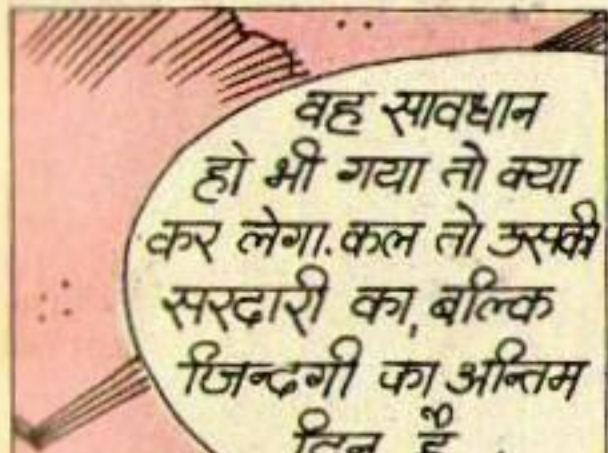 वह सावधान
हो भी गया तो क्या
कर लेगा. कल तो उसकी
सरदारी का, बल्कि
जिन्दगी का अन्तिम
दिन है.